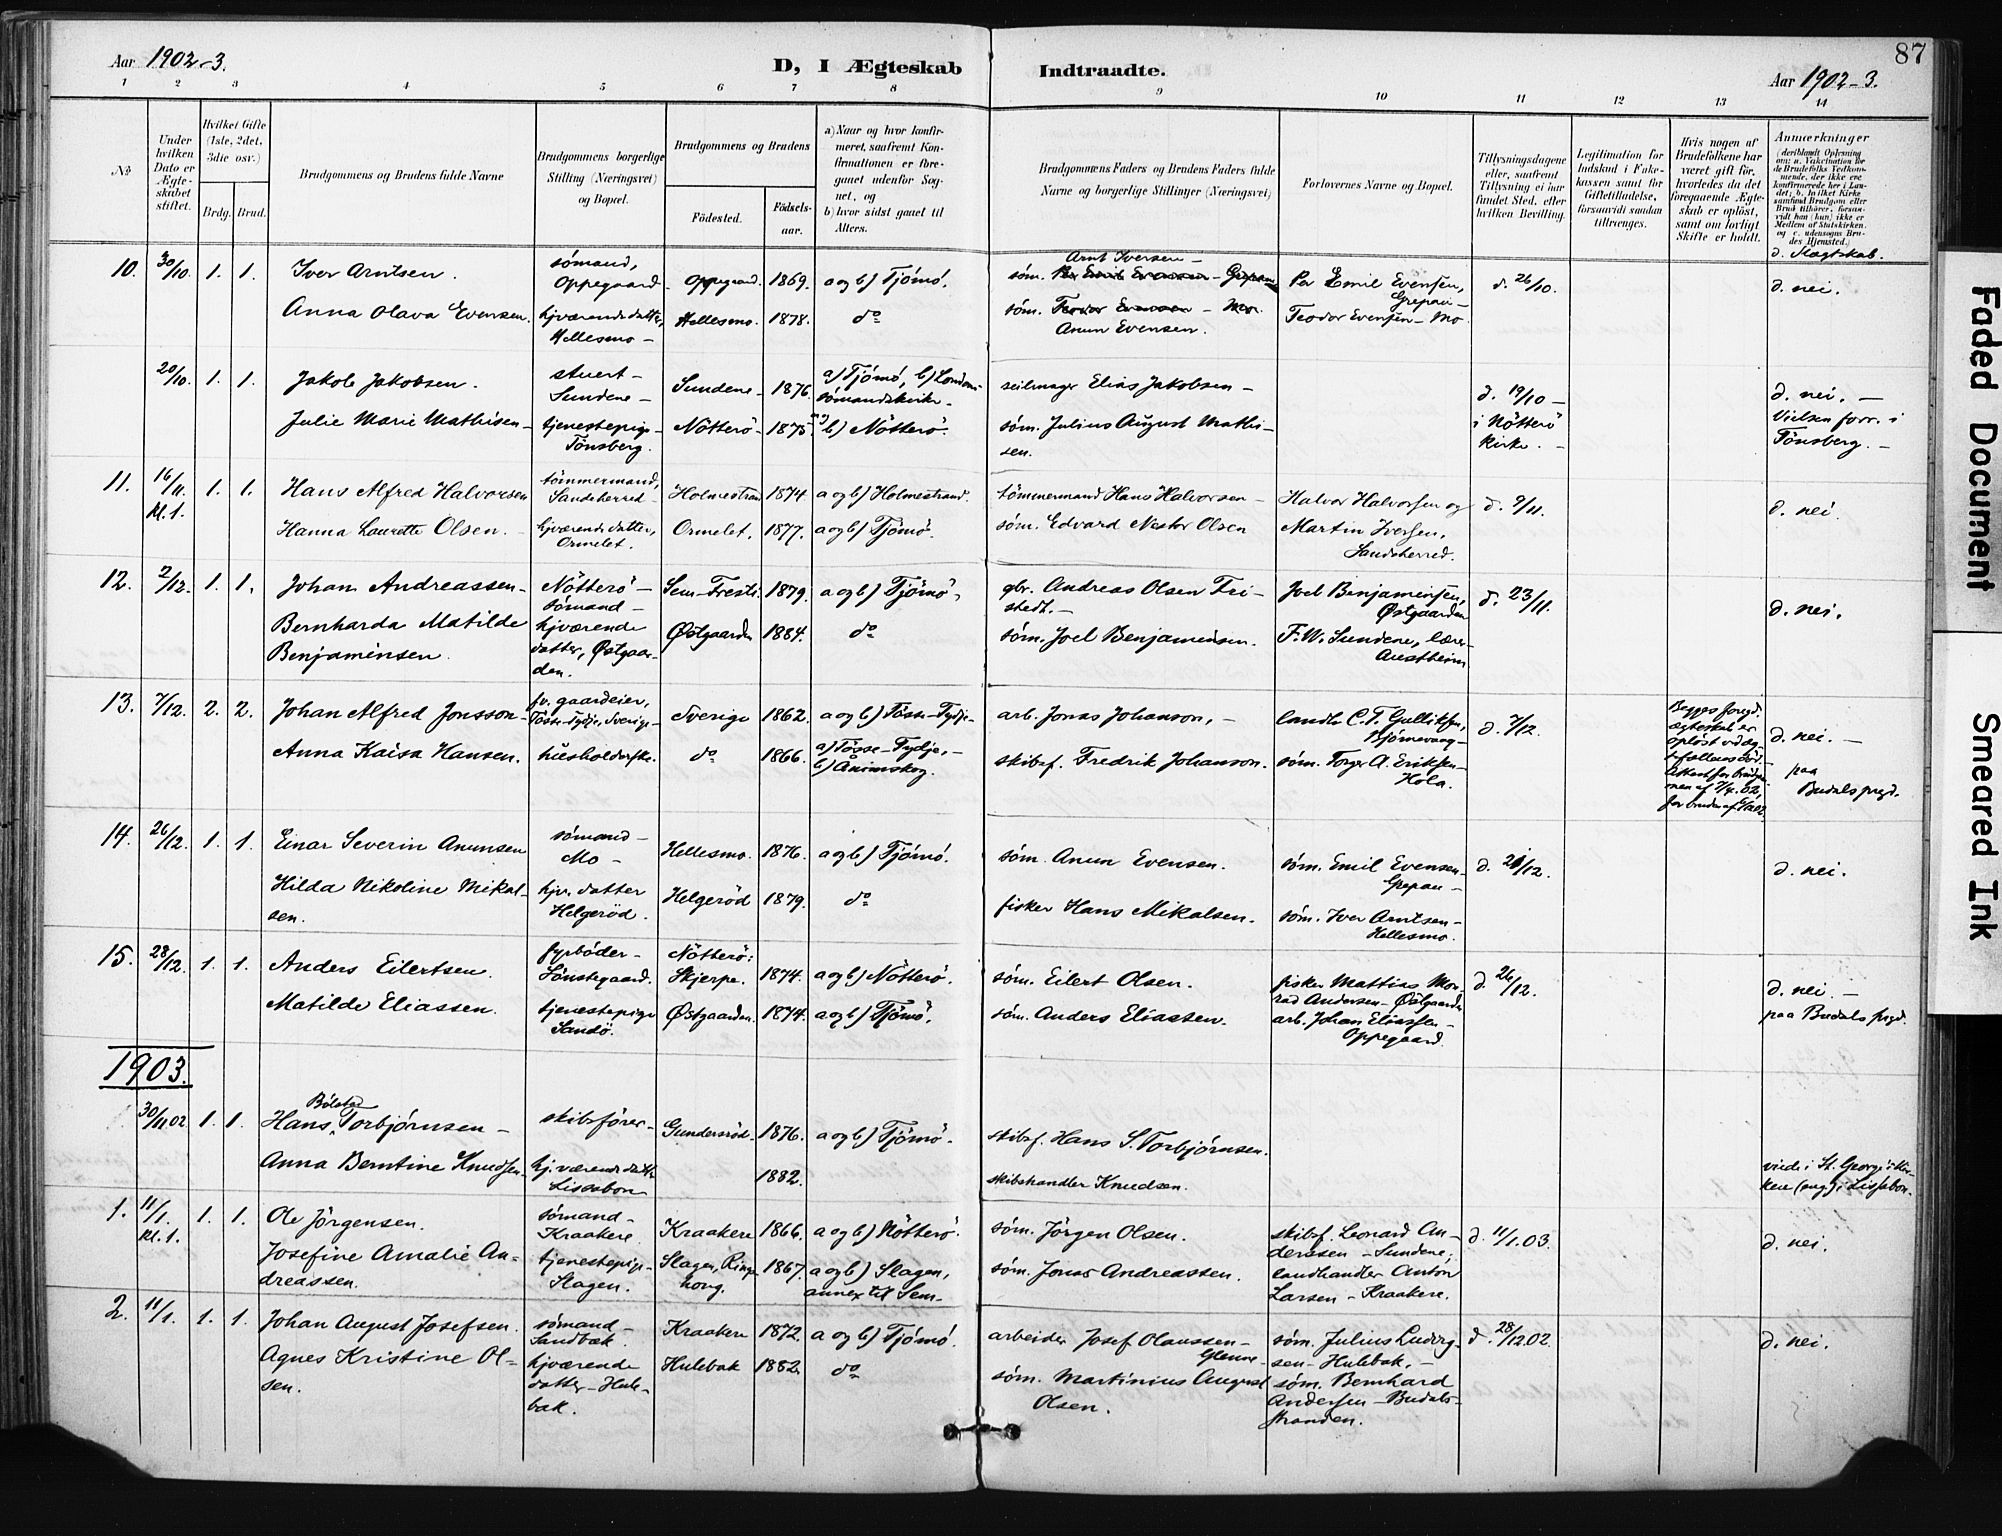 Aar 1902-3.
D, I Ægteskab Indtraadte.
Aar 1902-3.
87
1 2 3 4 5 6 7 8 9 10 11 12 13 14
No.
Under hvilken Dato er Ægteskabet stiftet.
Hvilket Gifte (1ste, 2det, 3die osv.)
Brdg. Brud.
Brudgommens og Brudens fulde Navne
Brudgommens borgerlige Stilling (Næringsvei) og Bopæl.
Brudgommens og Brudens
Fødested.
Fødselsaar.
a) Naar og hvor konfirmeret, saafremt Konfirmationen er foregaaet udenfor Sognet, og
b) hvor sidst gaaet til Alters.
Brudgommens Faders og Brudens Faders fulde Navne og borgerlige Stillinger (Næringsvei)
Forlovernes Navne og Bopæl.
Tillysningsdagene eller, saafremt Tillysning ei har fundet Sted, efter hvilken Bevilling.
Legitimation for Indskud i Enkekassen samt for Giftetilladelse, forsaavidt saadan tiltrænges.
Hvis nogen af Brudefolkene har været gift før, hvorledes da det foregaaende Ægteskab er opløst, samt om lovligt Skifte er holdt.
Anmærkninger
d. Slægtskab.
10. 30/10. 1. 1. Iver Arntsen. sømand, Oppegaard Oppegaard 1869. a og b) Tjømø. Arnt Iversen - Per Emil Evensen, Grepan - d. 26/10. d. nei.
Anna Olava Evensen. hjværende datter, Hellesmo - Hellesmo. 1878. do søm. Anun Evensen. Teodor Evensen - Mo
20/10. 1. 1. Jakob Jakobsen. stuert - Sundene - Sundene - 1876. a) Tjømø, b) London sømandskirke - seilmager Elias Jakobsen - d. 19/10 - i Nötterö kirke. - d. nei. - Vielsen forr. i Tönsberg. -
Julie Marie Mathisen - tjenestepige - Tönsberg. Nötterö - 1875 b) Nötterö. søm. Julius August Mathisen.
11. 16/11. kl. 1. 1. 1. Hans Alfred Halvorsen tömmermand, Sandeherred - Holmestrand 1874 a og b) Holmestrand. tömmermand Hans Halvorsen - Halvor Halvorsen og d. 9/11. d. nei.
Hanna Laurette Olsen. - hjværende datter, Ormelet. Ormelet. 1877. a og b) Tjømø. søm. Edvard Nestor Olsen Martin Iversen, Sandeherred.
12. 2/12. 1. 1. Johan Andreassen - Nötterö - sømand - Sem - 1879. a og b) Tjømø. gbr. Andreas Olsen Fristedt. - Joel Benjaminsen, Østgaarden d. 23/11. d. nei.
Bernharda Matilde Benjaminsen. hjværende datter, Østgaarden. Østgaarden 1884. do søm. Joel Benjaminsen. F. W. Sundene, lærer -
13. 7/12. 2. 2. Johan Alfred Jonsson - fv. gaardeier, Tösse-Tydje, Sverige - Sverige 1862. a og b) Tösse-Tydje - arb. Jonas Johanson, - landh. C. T. Gulliksen, Bjørnevaag - d. 7/12. Begges foregd. ægteskab er opløst d. nei. - paa Budals prgd.
Anna Kaisa Hansen. husholderske. do 1866. a) Tösse-Tydje, - b) Ånimskog. skibsf. Fredrik Johanson. søm. Torger A. Eriksen - Hola.
14. 26/12. 1. 1. Einar Severin Anunsen sømand - Mo - Hellesmo. 1876. a og b) Tjømø. søm. Anun Evensen. søm. Emil Evensen - Grepan - d. 21/12. d. nei.
Hilda Nikoline Mikalsen. hjv. datter Helgeröd. Helgeröd 1879. do fisker Hans Mikalsen. søm. Iver Arntsen - Hellesmo.
15. 28/12. 1. 1. Anders Eilertsen. fyrböder - Lönstegaard. Nötterö: Skjerpe. 1874. a og b) Nötterö. søm. Eilert Olsen. fisker Mattias Monrad Andersen - Østgaarden d. 26/12. d. nei. -
Matilde Eliassen. tjenestepige Sandö. Østgaarden. 1874. a og b) Tjømø. søm. Anders Eliassen. arb. Johan Eliassen - Oppegaard. paa Budals prgd.
1903.
30/11 02 1. 1. Hans Torbjørnsen - skibsfører - Gundersröd. 1876. a og b) Tjømø. skibsf. Hans S. Torbjørnsen.
Anna Berntine Knudsen. hj. værende datter Lissabon 1882. skibshandler Knudsen. viede i St. George's kirken (eng.) i Lissabon.
1. 11/1. kl. 1. 1. 1. Ole Jörgensen. sømand - Kraakere. Kraakere 1866. a og b) Nötterö. søm. Jörgen Olsen. skibsf. Leonard Anderssen - Sundene, d. 11/1.03. d. nei.
Josefine Amalie Andreassen. tjenestepige - Slagen. Slagen, Ringshoug. 1867. a og b) Slagen, annex til Sem - søm. Jonas Andreassen. landhandler Anton Larsen - Kraakere.
2. 11/1. 1. 1. Johan August Josefsen. sømand - Sandbæk. Kraakere 1872. a og b) Tjømø. arbeider Josef Olaussen - Glenne - søm. Julius Ludvigsen - Hulebak. - d. 28/12.02. d. nei.
Agnes Kristine Olsen. hjværende datter - Hulebak. Hulebak 1882. do søm. Martinius August Olsen. søm. Bernhard Andersen - Budalsstranden.
Faded Document
Smeared Ink